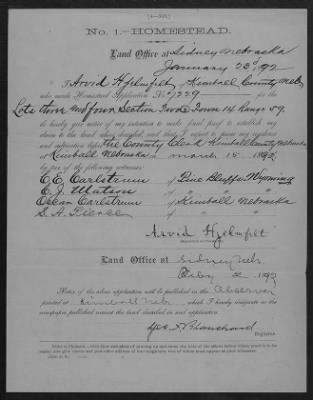 No. 1.—HOMESTEAD.
Land Office at Sidney Nebraska
January 23d 1892
I, Arvid Hjelmfelt, of Kimball County Neb
who made Homestead Application No. 1229 for the
Lots three and four Section Twelve Town 14 Range 59
do hereby give notice of my intention to make final proof to establish my
claim to the land above described, and that I expect to prove my residence
and cultivation before the County Clerk Kimball County Nebraska
at Kimball Nebraska on March 15 1892
by two of the following witnesses:
C. E. Carlstrum of Pine Bluffs Wyoming
E. J. Matson of " "
Oscar Carlstrum of Kimball Nebraska
S. A. Pierce of " "
Arvid Hjelmfelt
Land Office at Sidney Neb.
Feby 2 1892
Notice of the above application will be published in the Observer
printed at Kimball Neb., which I hereby designate as the
newspaper published nearest the land described in said application.
Geo. Blanchard
Register.